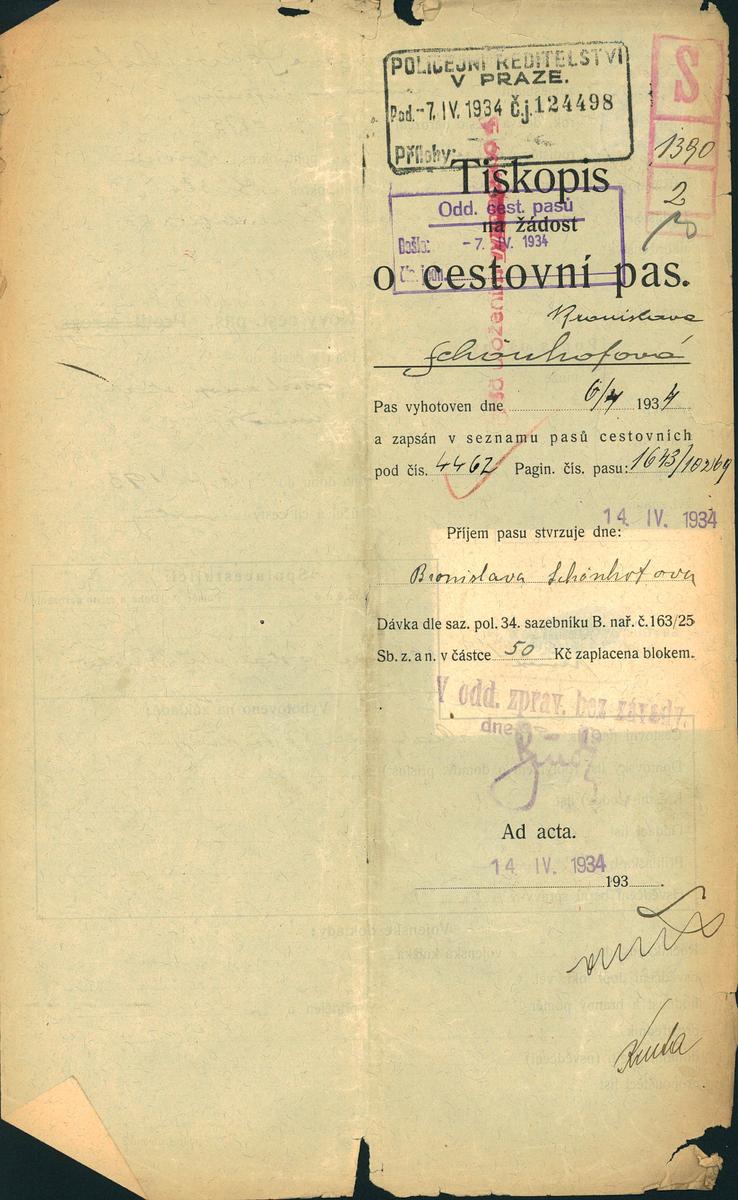 POLICEJNÍ ŘEDITELSTVÍ
V PRAZE.
Pod. -7. IV. 1934 Č.j. 124498
Přílohy:
S
1390
2
Tiskopis
Odd. cest. pasů
na žádost
Došlo: -7. IV. 1934
o cestovní pas.
Bronislava
Schönhofová
Pas vyhotoven dne 6/4 1934
a zapsán v seznamu pasů cestovních
pod čís. 4462 Pagin. čís. pasu: 1643/10269
14. IV. 1934
Příjem pasu stvrzuje dne:
Bronislava Schönhofova
Dávka dle saz. pol. 34. sazebníku B. nař. č. 163/25
Sb. z. a n. v částce 50 Kč zaplacena blokem.
V odd. zprav. bez závady.
dne 19
Ad acta.
14 IV. 1934
193